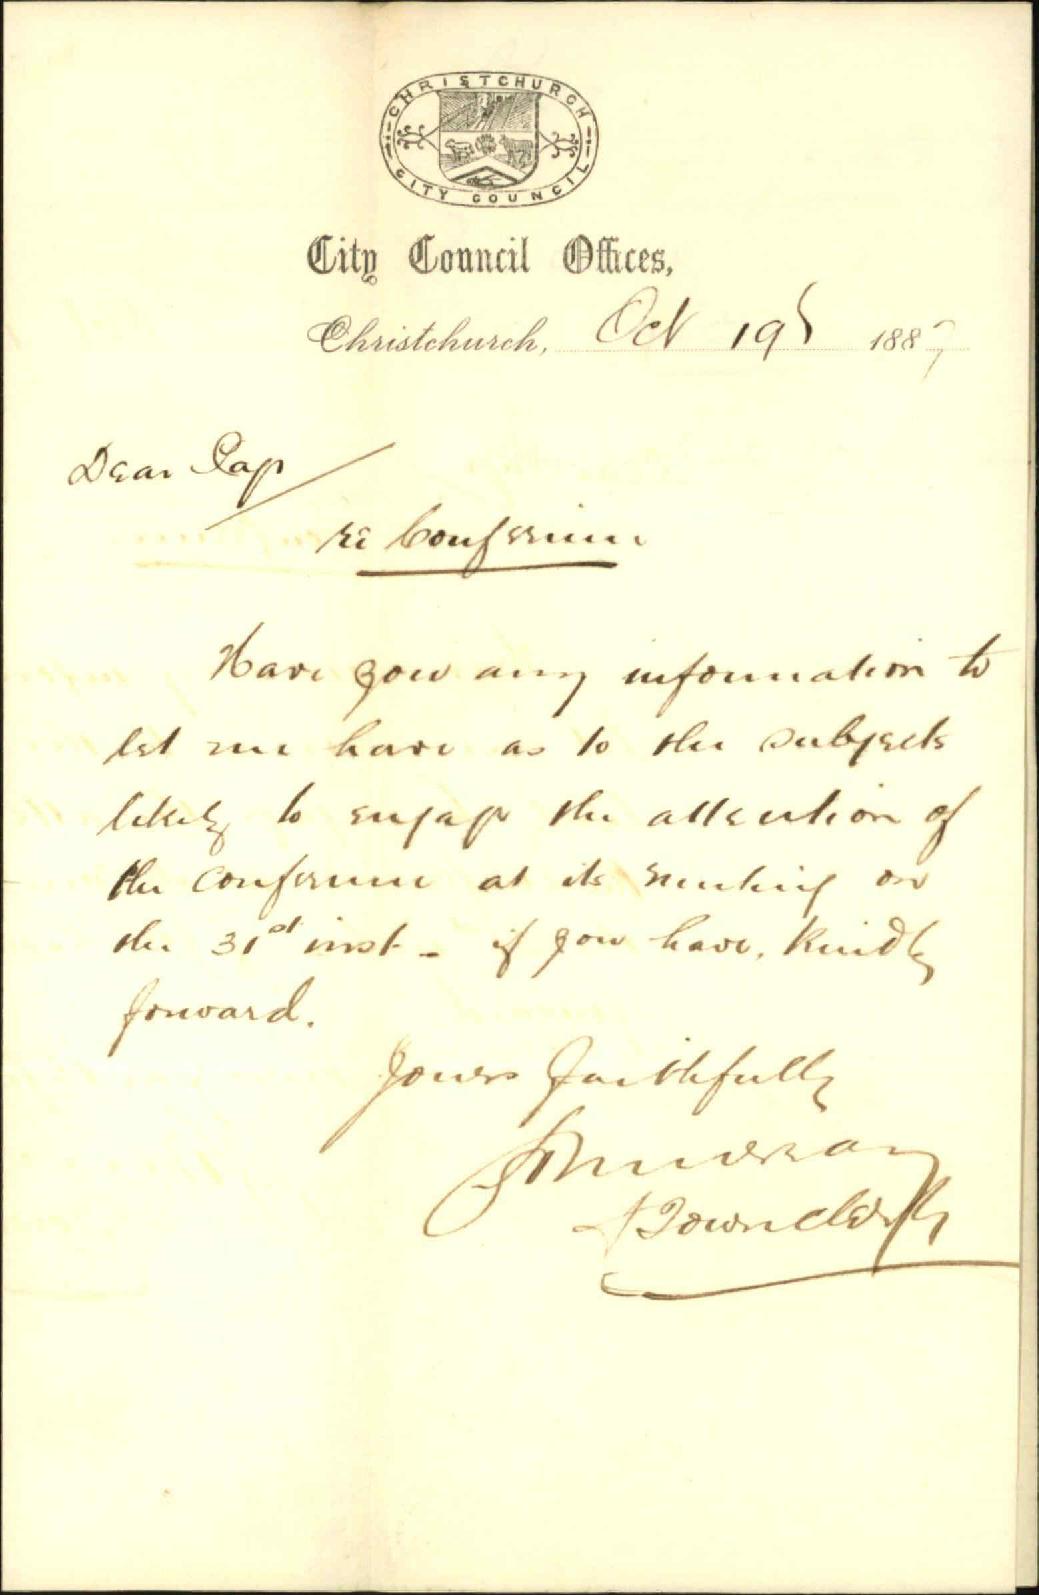 CHRISTCHURCH
CITY COUNCIL
City Council Offices,
Christchurch, Oct 19 1887
Dear
re Conference
Have you any information to
let me have as to the subjects
likely to engage the attention of
the conference at its meeting on
the 31st inst - if you have, kindly
forward.
Yours faithfully
Town Clerk